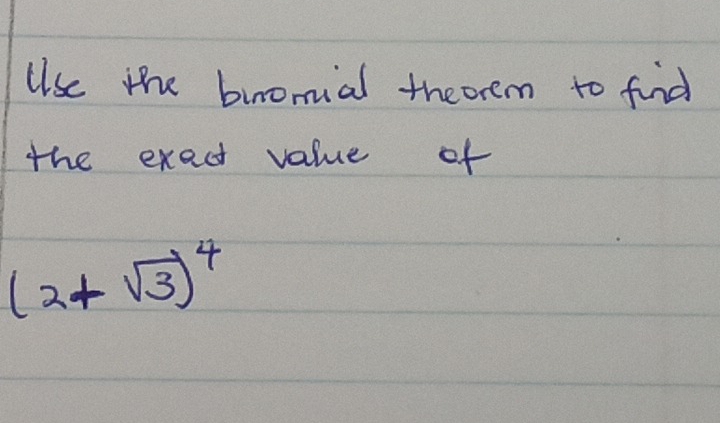 Use the binomial theorem to find
the exact value of
(2+ √3)⁴